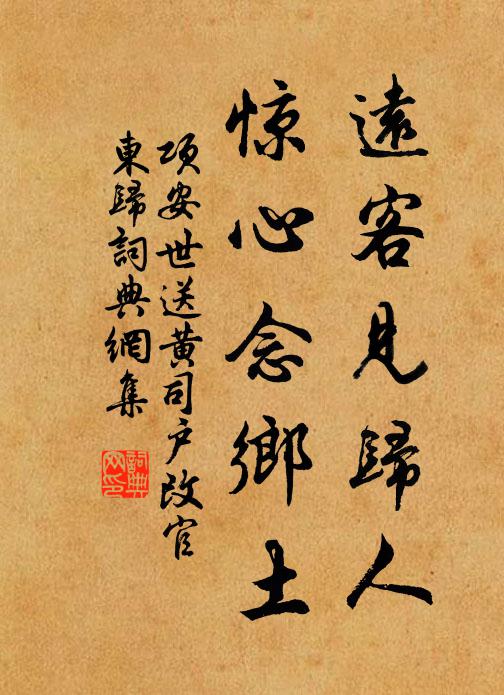 遠客見歸人
惊心念鄉土
项安世送黄司户改官
東歸詞典網集
詞典
网印